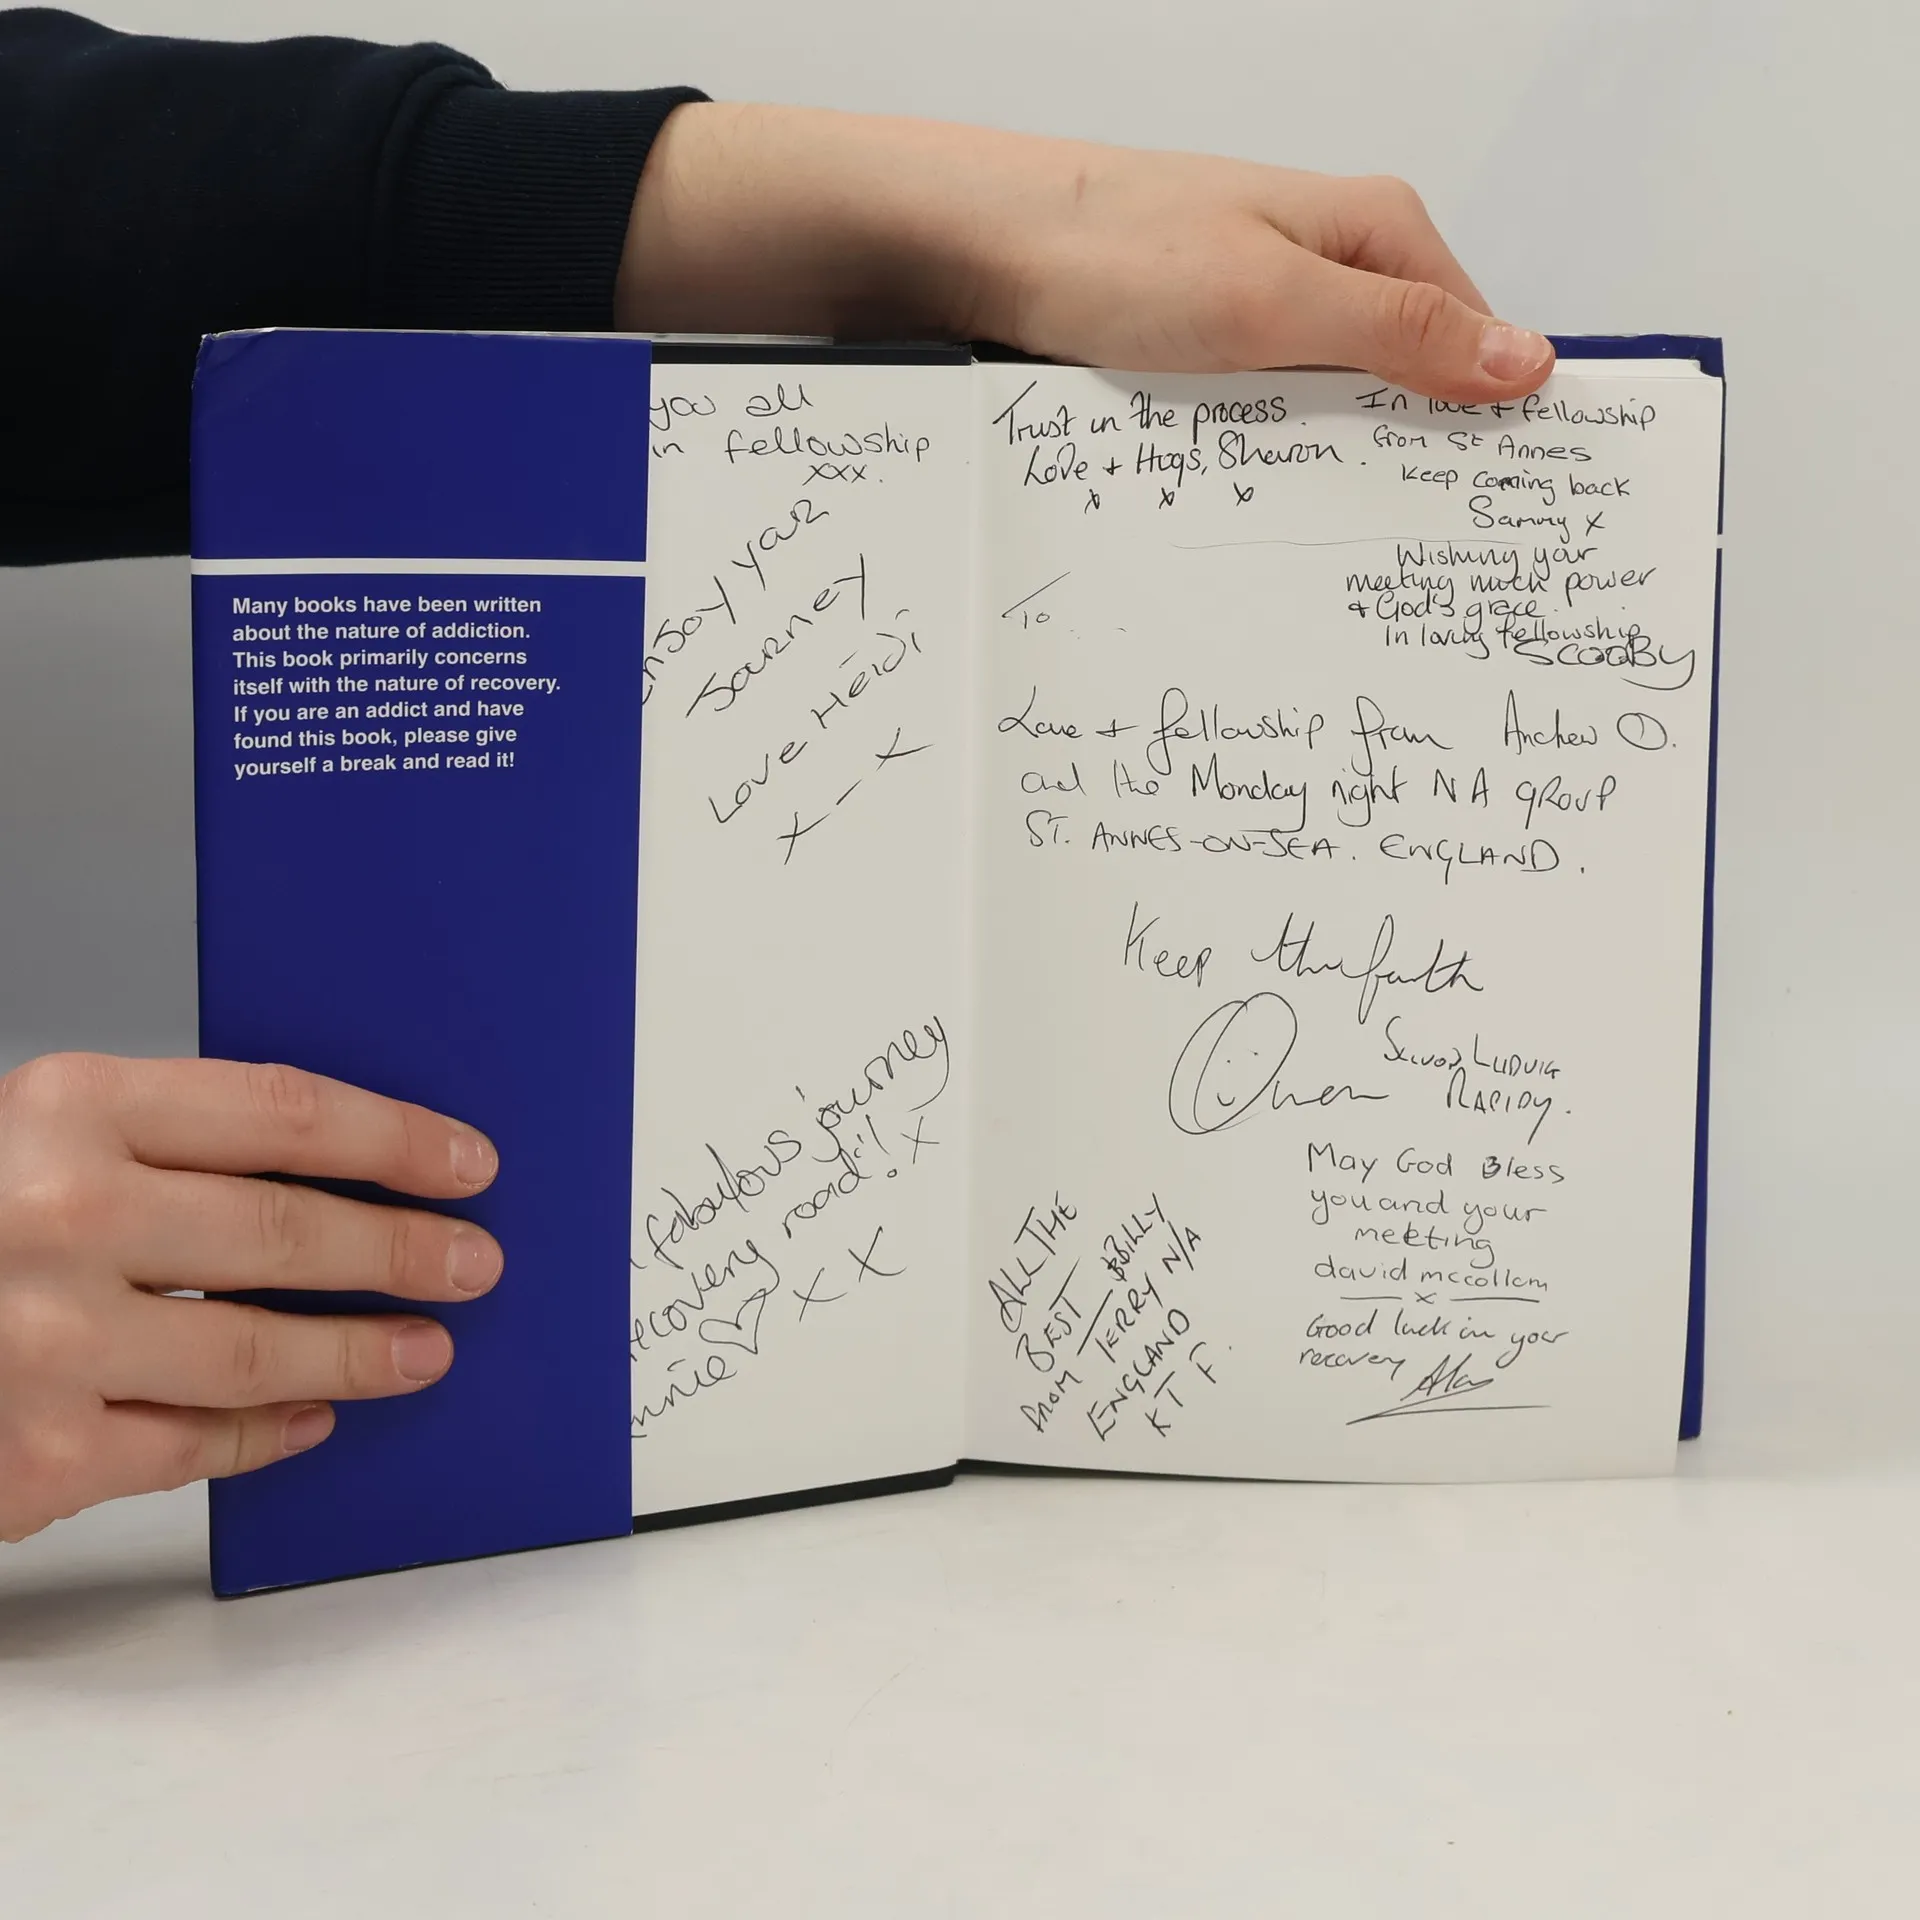 Many books have been written
about the nature of addiction.
This book primarily concerns
itself with the nature of recovery.
If you are an addict and have
found this book, please give
yourself a break and read it!
you all
in fellowship
xxx.
enJoy your
Journey
Love Heidi
x – x
fabulous journey
recovery road!! x
nnie x x
Trust in the process.
Love + Hugs, Sharon.
x x x
In love + fellowship
from St Annes
Keep coming back
Sammy x
Wishing your
meeting much power
& God's grace.
In loving fellowship
SCOOBY
To
Love + fellowship from Andrew O.
and the Monday night NA GROUP
ST. ANNES-ON-SEA. ENGLAND.
Keep the faith
Owen
LUDVIG
May God Bless
you and your
meeting
david mccollam
x
Good luck in your
recovery Alan
ALL THE
BEST BILLY
FROM TERRY N/A
ENGLAND
K T F.